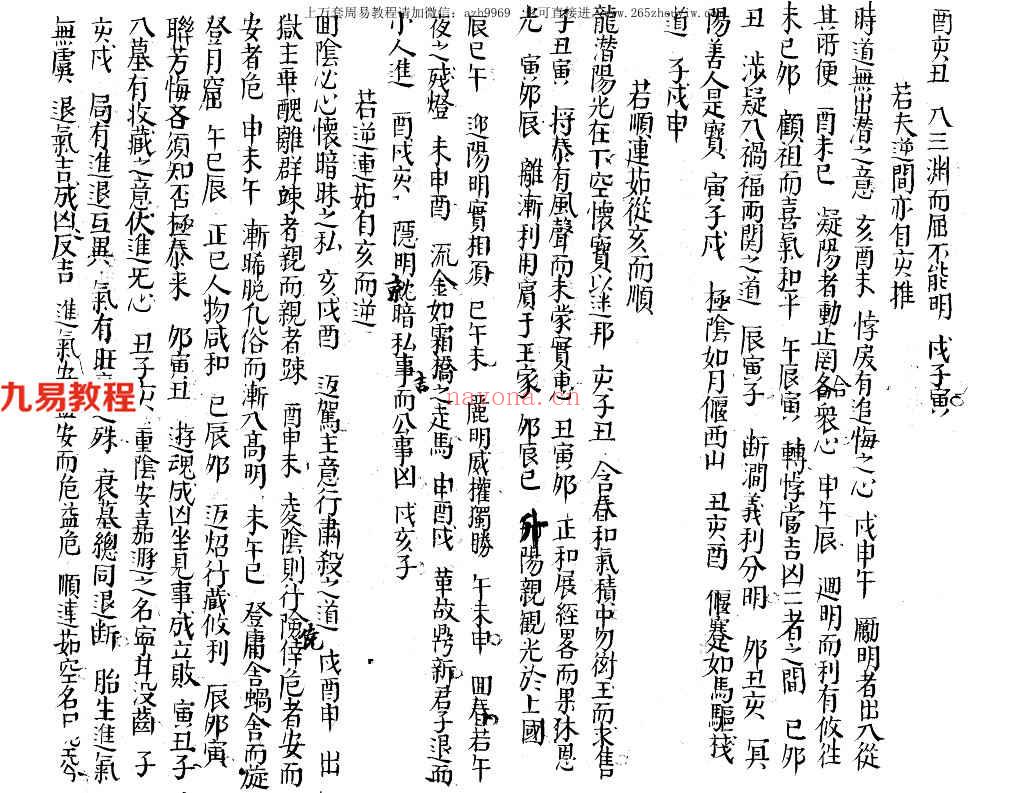 上万套周易教程请加微信：azh9969
九易教程
nayona.cn
酉亥丑 入三渊而屈不能明 戌子寅
若夫逆間亦自亥推
時道無出潜之意 亥酉未 悖戾有追悔之心 戌申午 勵明者出入從
其所便 酉未巳 凝陽者動止罔咎衆心 申午辰 迴明而利有攸往
未巳卯 顧祖而喜氣和平 午辰寅 轉悖當吉凶二者之間 巳卯
丑 涉疑入禍福兩関之道 辰寅子 断澗義利分明 卯丑亥 冥
陽善人是寶 寅子戌 極陰如月偃西山 丑亥酉 偃蹇如馬驅栈
道 子戌申
若順連茹從亥而順
龍潜陽光在下空懷寶以迷邦 亥子丑 含春和氣積中勿衒玉而求售
子丑寅 将泰有風聲而未蒙實惠 丑寅卯 正和展經畧而果沐恩
光 寅卯辰 離漸利用賓于王家 卯辰巳 升陽親観光於上國
辰巳午 迎陽明實相須 巳午未 麗明威權獨勝 午未申 回春若午
夜之残燈 未申酉 流金如霜橋之走馬 申酉戌 革故鼎新君子退而
小人進 酉戌亥 隱明就暗私事吉而公事凶 戌亥子
若逆連茹自亥而逆
回陰必心懷暗昧之私 亥戌酉 返駕主意行肅殺之道 戌酉申 出
獄主乖醜離群踈者親而親者踈 酉申未 凌陰則行險侥倖危者安而
安者危 申未午 漸晞脱凡俗而漸入高明 未午巳 登庸舍蝸舍而旋
登月窟 午巳辰 正巳人物咸和 巳辰卯 返炤行藏攸利 辰卯寅
聯芳悔吝須知否極泰来 卯寅丑 遊魂成凶坐見事成立敗 寅丑子
入墓有收藏之意伏進无心 丑子亥 重陰安嘉遯之名寧甘没齒 子
亥戌 局有進退互異 氣有旺之殊 衰墓總同退断 胎生進氣
無虞 退氣吉成凶反吉 進氣安而危益危 順連茹空名